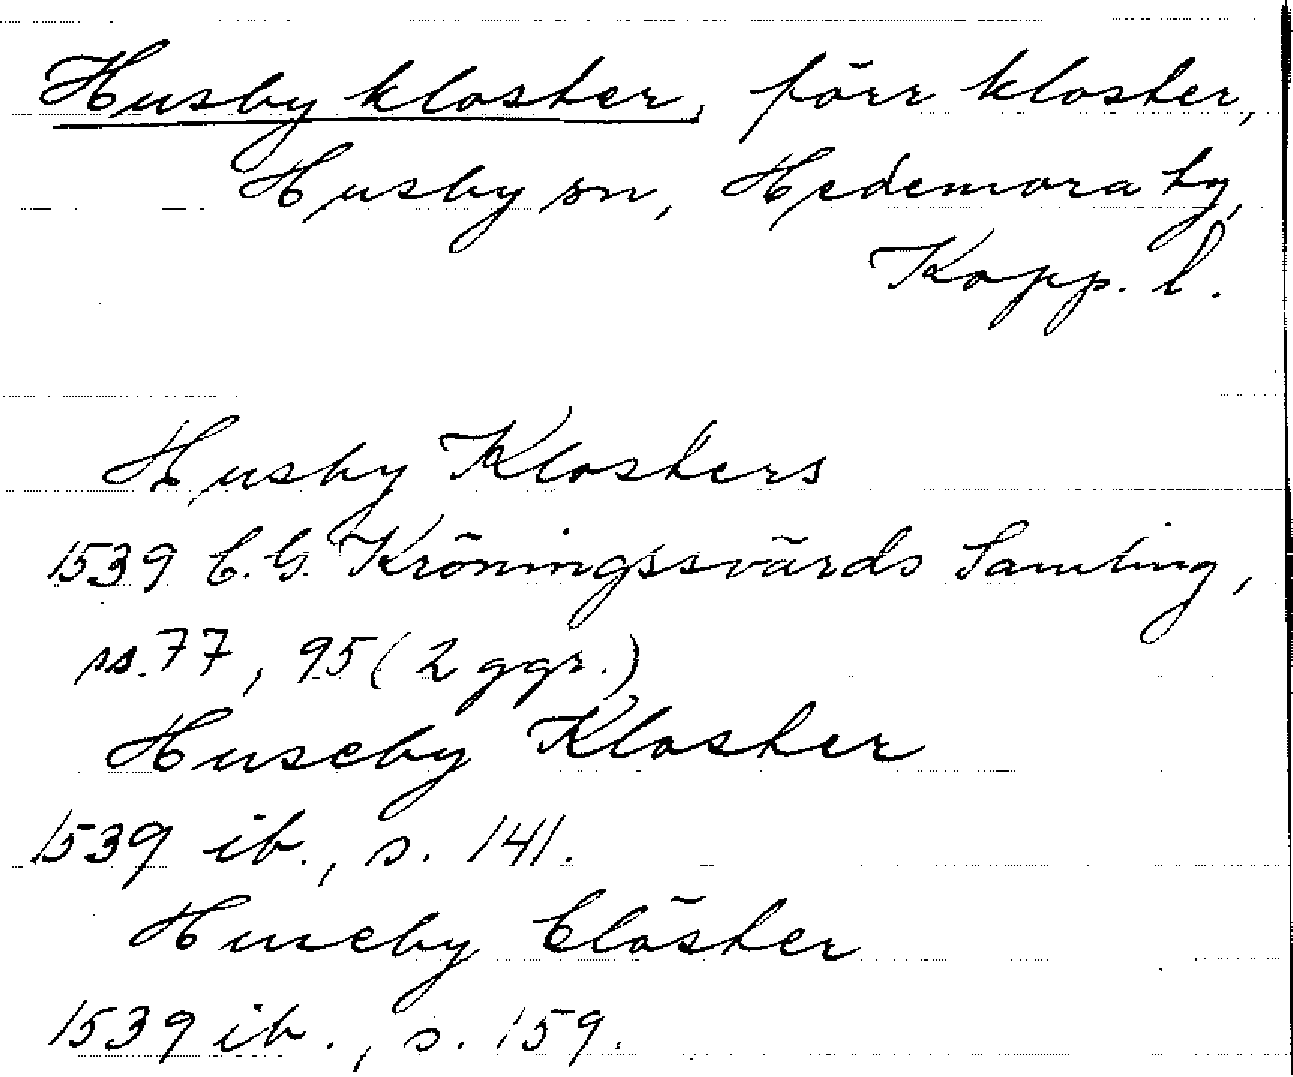 Husby kloster, förr kloster,
Husby sn, Hedemora hg,
Kopp. l.
Husby Klosters
1539 C.G. Kröningssvärds Samling,
ss. 77, 95 (2 ggr.)
Huseby Kloster
1539 ib., s. 141.
Huseby Clöster
1539 ib., s. 159.